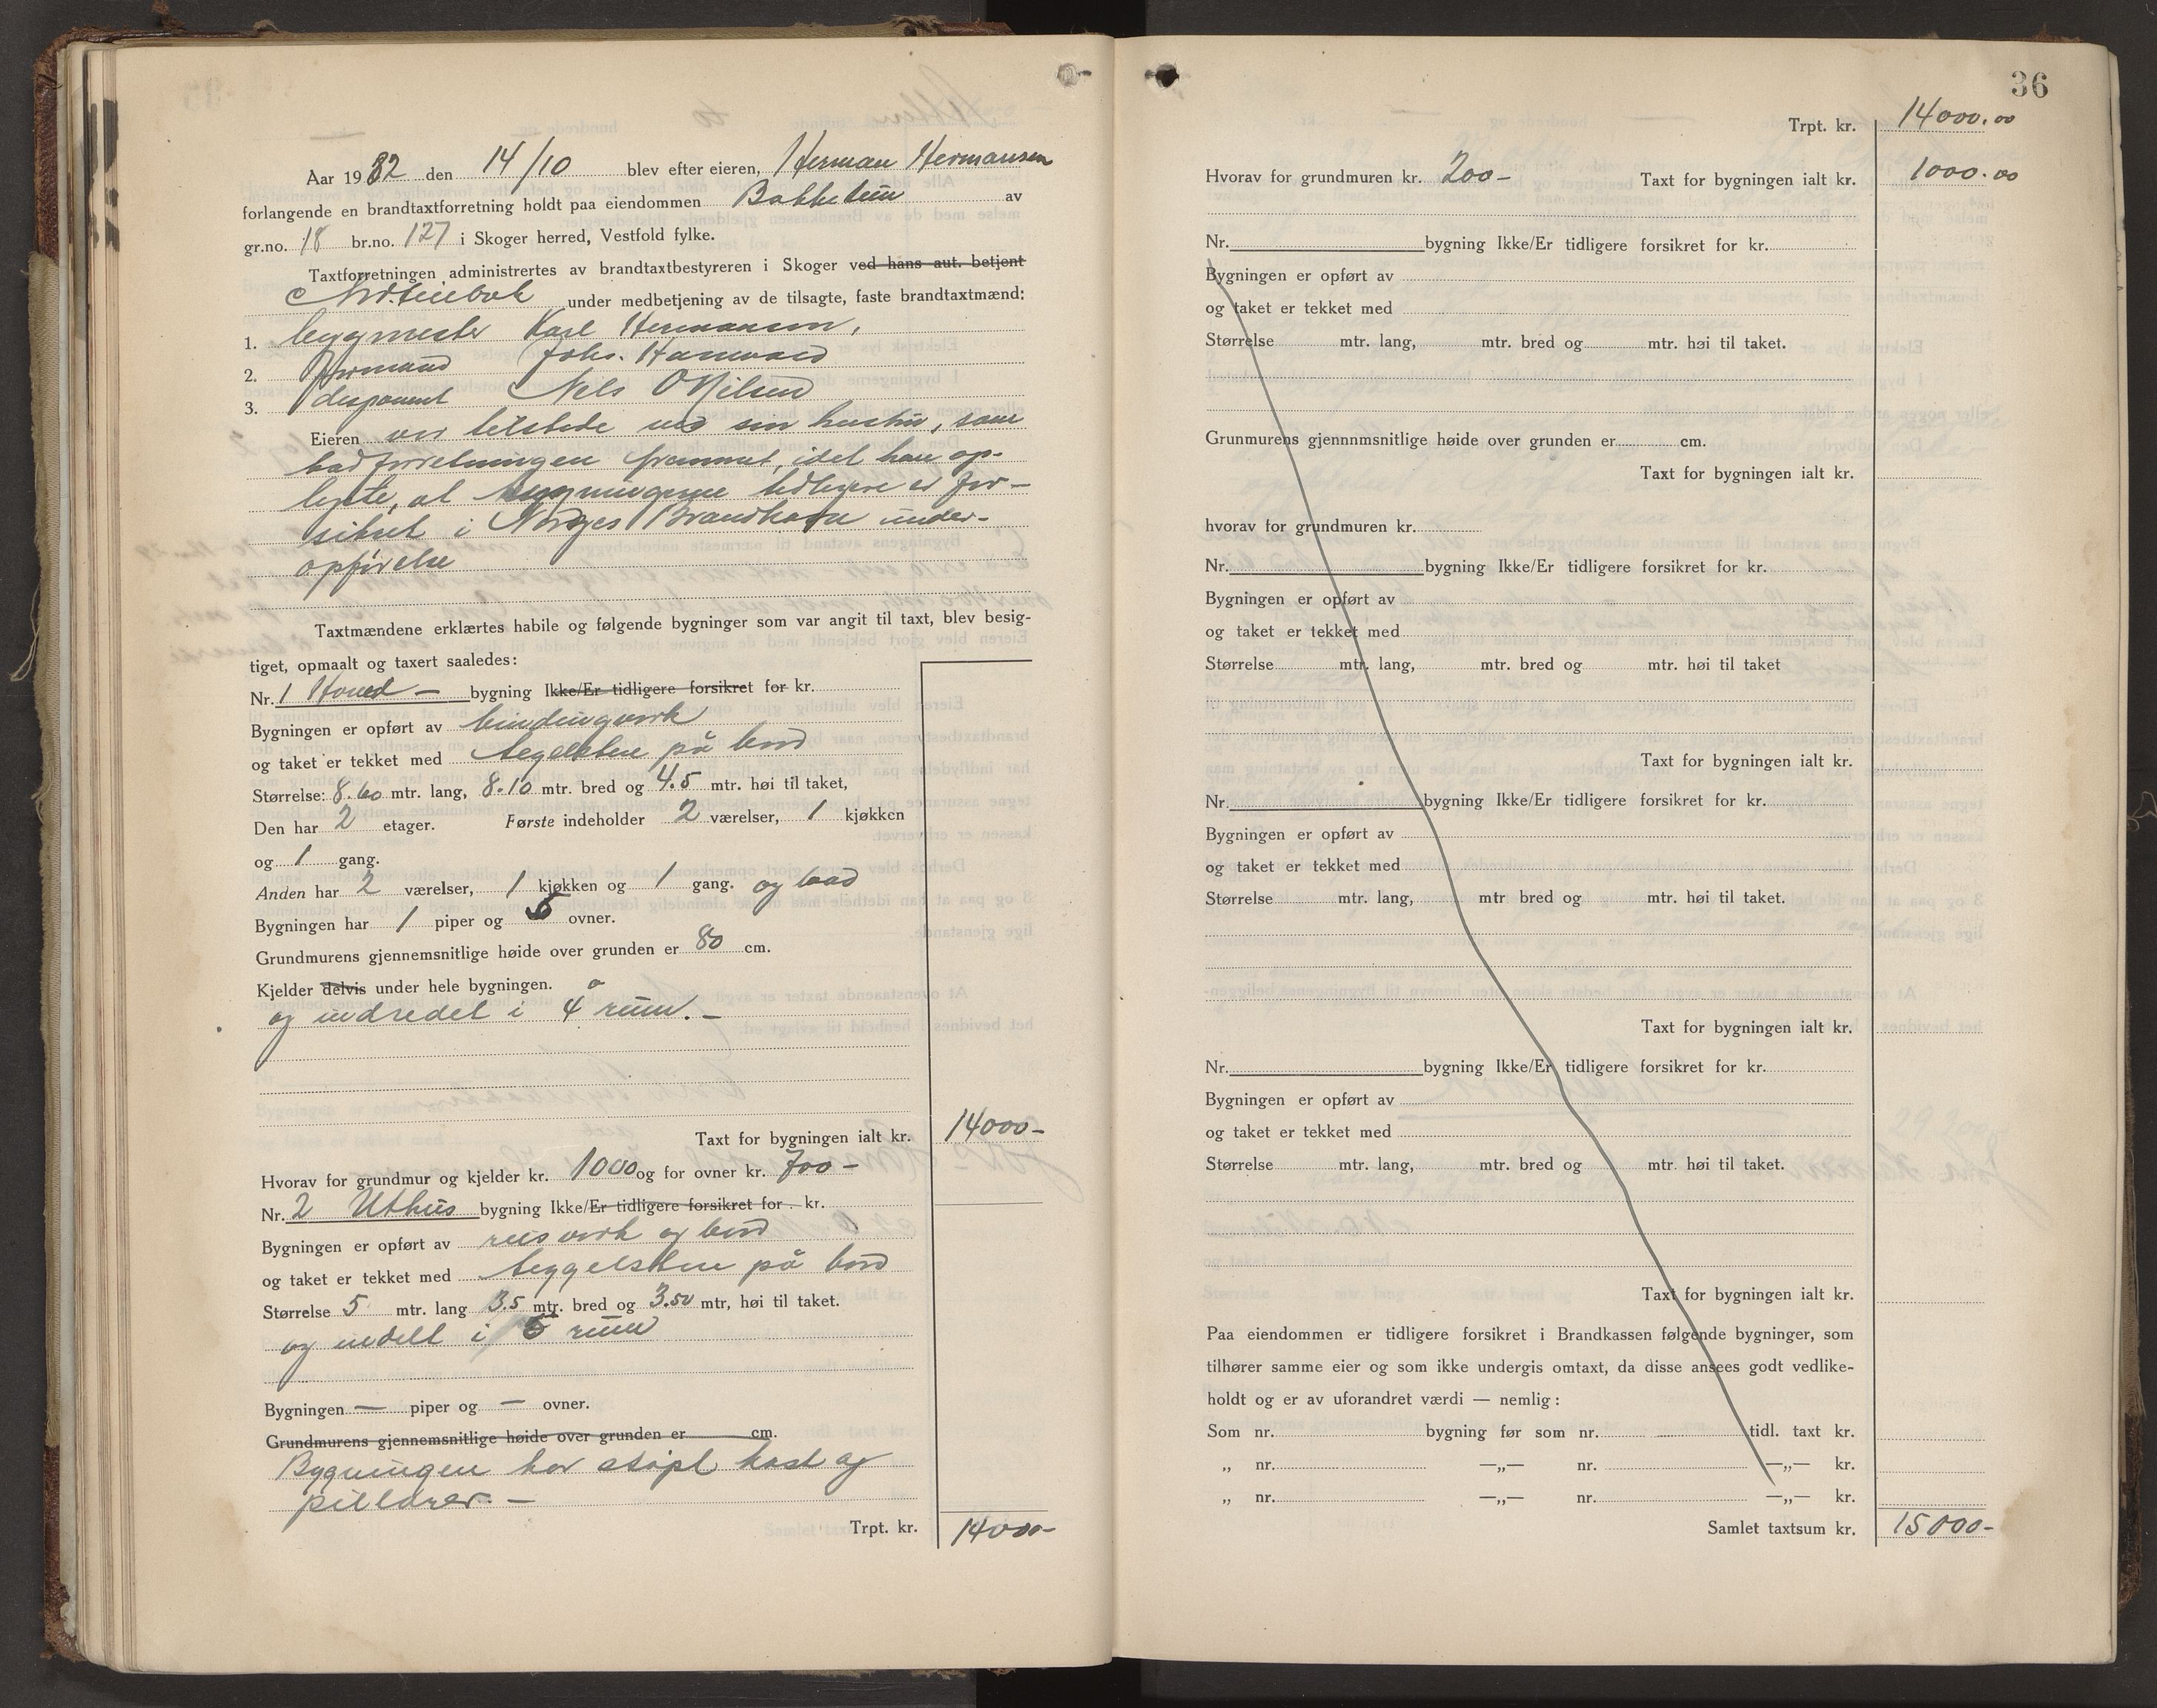 Aar 1932 den 14/10 blev efter eieren, Herman Hermansen
forlangende en brandtaxtforretning holdt paa eiendommen Bakketun av
gr.no. 18 br.no. 127 i Skoger herred, Vestfold fylke.
Taxtforretningen administrertes av brandtaxtbestyreren i Skoger ved hans aut. betjent
under medbetjening av de tilsagte, faste brandtaxtmænd:
1. byggmester Karl Hermansen,
2. formand Johs. Hanevold
3. disponent Nels O Nilsen
Eieren var tilstede ved sin hustru, som
bad forretningen fremmet, idet hun op-
lyste, at bygningerne tidligere er for-
sikret i Norges Brandkasse under-
opførelse
Taxtmændene erklærtes habile og følgende bygninger som var angit til taxt, blev besig-
tiget, opmaalt og taxert saaledes:
Nr. 1 Hoved - bygning Ikke/Er tidligere forsikret for kr.
Bygningen er opført av bindingverk
og taket er tekket med tegelsten på bord
Størrelse: 8.60 mtr. lang, 8.10 mtr. bred og 4.5 mtr. høi til taket,
Den har 2 etager. Første indeholder 2 værelser, 1 kjøkken
og 1 gang.
Anden har 2 værelser, 1 kjøkken og 1 gang. og bad
Bygningen har 1 piper og 5 ovner.
Grundmurens gjennemsnitlige høide over grunden er 80 cm.
Kjelder delvis under hele bygningen.
og indredet i 4 rum. -
Taxt for bygningen ialt kr. 14000-
Hvorav for grundmur og kjelder kr. 1000 og for ovner kr. 700-
Nr. 2 Uthus bygning Ikke/Er tidligere forsikret for kr.
Bygningen er opført av reisverk og bord
og taket er tekket med teggelsten på bord
Størrelse 5 mtr. lang 3.5 mtr. bred og 3.50 mtr, høi til taket.
og indelt i 5 rum
Bygningen — piper og — ovner.
Grundmurens gjennemsnitlige høide over grunden er cm.
Bygningen har støpt kast og
pillarer. -
Trpt. kr. 14000-
36
Trpt. kr. 14000.00
Hvorav for grundmuren kr. 200- Taxt for bygningen ialt kr. 1000.00
Nr. bygning Ikke/Er tidligere forsikret for kr.
Bygningen er opført av
og taket er tekket med
Størrelse mtr. lang, mtr. bred og mtr. høi til taket.
Grunmurens gjennnmsnitlige høide over grunden er cm.
Taxt for bygningen ialt kr.
hvorav for grundmuren kr.
Nr. bygning Ikke/Er tidligere forsikret for kr.
Bygningen er opført av
og taket er tekket med
Størrelse mtr. lang, mtr. bred og mtr. høi til taket
Taxt for bygningen ialt kr.
Nr. bygning Ikke/Er tidligere forsikret for kr.
Bygningen er opført av
og taket er tekket med
Størrelse mtr. lang, mtr bred og mtr. høi til taket.
Taxt for bygningen ialt kr.
Nr. bygning Ikke/Er tidligere forsikret for kr.
Bygningen er opført av
og taket er tekket med
Størrelse mtr. lang, mtr. bred og mtr. høi til taket.
Taxt for bygningen ialt kr.
Paa eiendommen er tidligere forsikret i Brandkassen følgende bygninger, som
tilhører samme eier og som ikke undergis omtaxt, da disse ansees godt vedlike-
holdt og er av uforandret værdi — nemlig:
Som nr. bygning før som nr. tidl. taxt kr.
„ nr. —„— nr. —„— kr.
„ nr. —„— nr. —„— kr.
Samlet taxtsum kr. 15000-